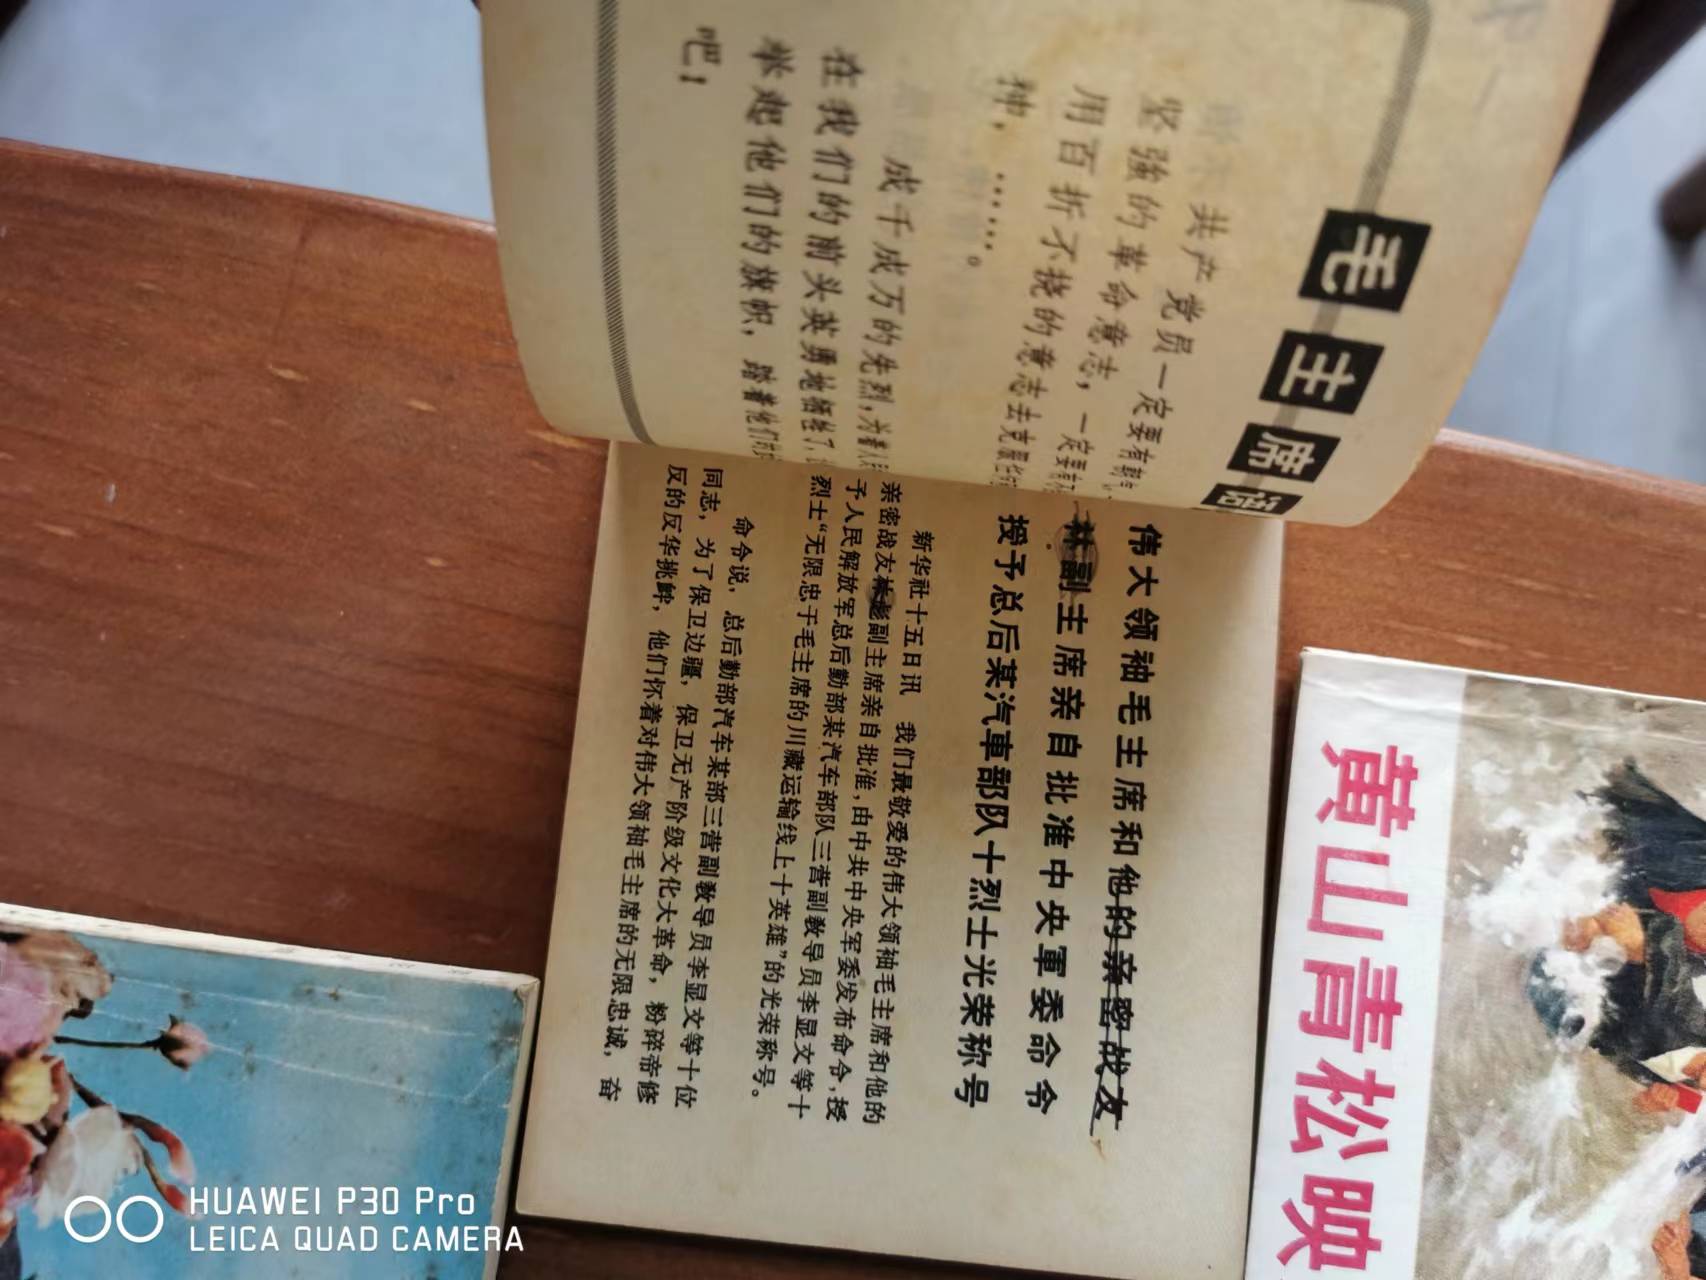 毛主席语
共产党员一定要有朝气,
坚强的革命意志,一定要有
用百折不挠的意志去克服任何
种,……。
成千成万的先烈,为着人民
在我们的前头英勇地牺牲了,
举起他们的旗帜,踏着他们的
吧!
伟大领袖毛主席和他的亲密战友
林副主席亲自批准中央軍委命令
授予总后某汽車部队十烈士光荣称号
新华社十五日讯 我们最敬爱的伟大领袖毛主席和他的
亲密战友林彪副主席亲自批准,由中共中央军委发布命令,授
予人民解放军总后勤部某汽车部队三营副教导员李显文等十
烈士“无限忠于毛主席的川藏运输线上十英雄”的光荣称号。
命令说,总后勤部汽车某部三营副教导员李显文等十位
同志,为了保卫边疆,保卫无产阶级文化大革命,粉碎帝修
反的反华挑衅,他们怀着对伟大领袖毛主席的无限忠诚,奋
黄山青松映
HUAWEI P30 Pro
LEICA QUAD CAMERA